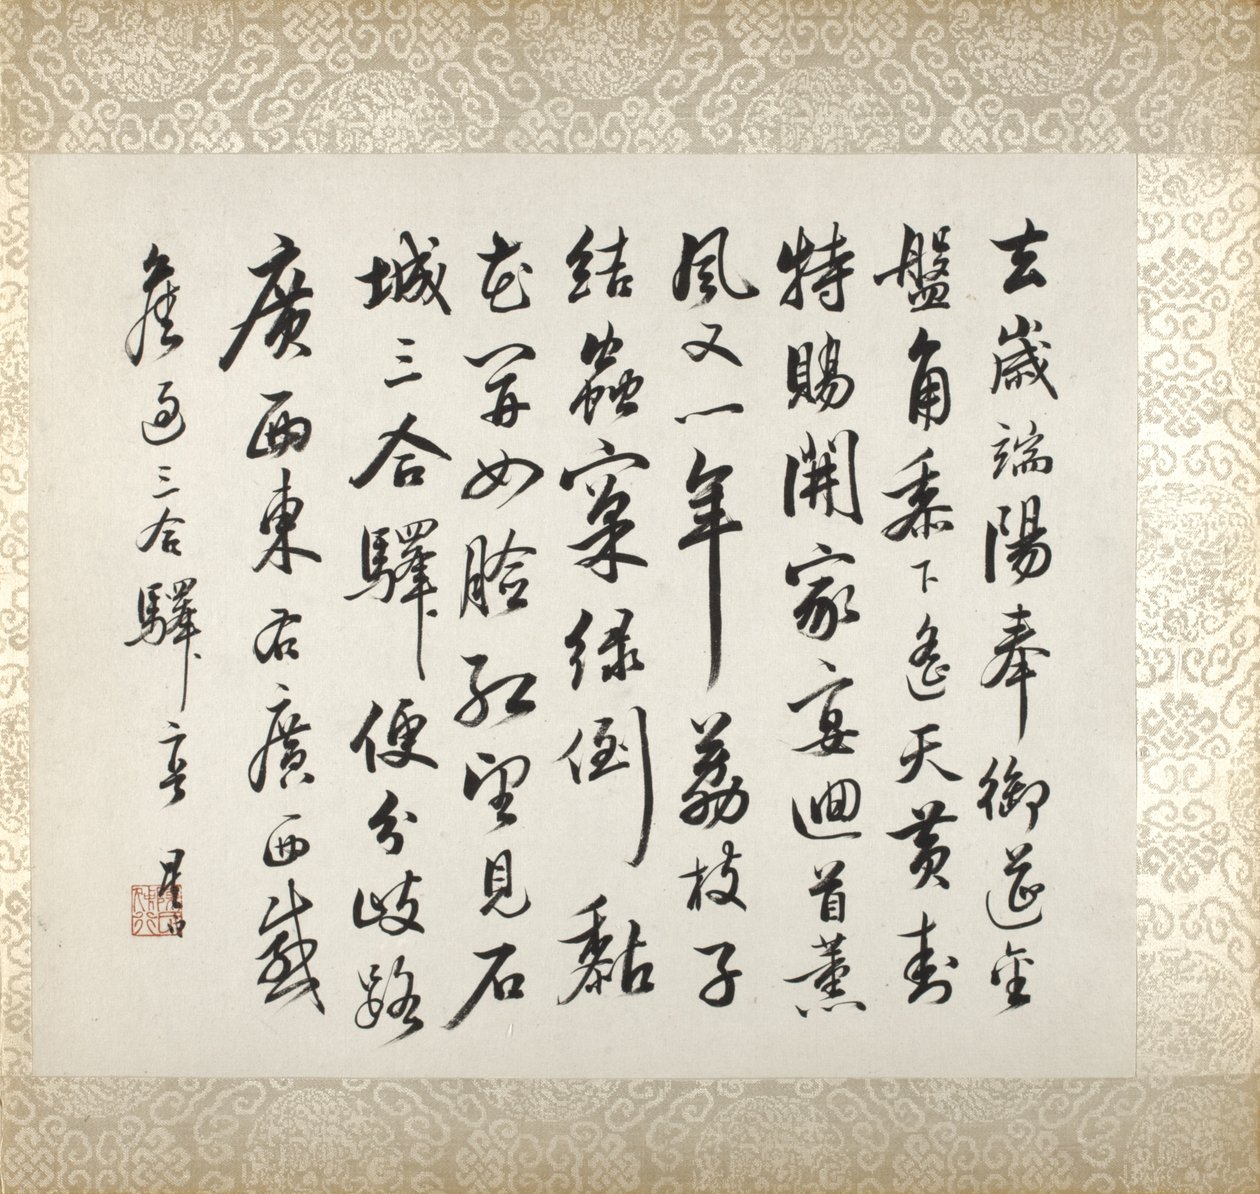 去歲端陽奉御筵金
盤角黍下遙天黃封
特賜開家宴迴首薰
風又一年荔枝子
結蟲窠綠倒黏
花開女臉紅望見石
城三合驛便分歧路
廣西東右廣西感
過三合驛